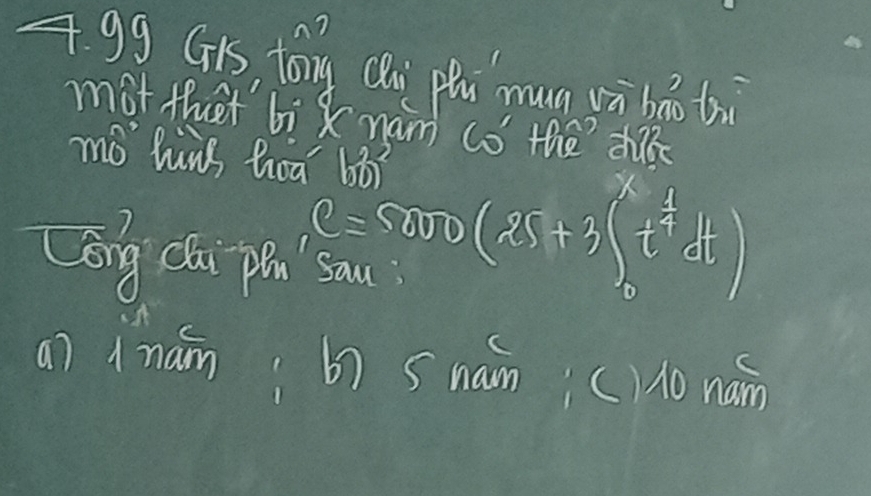 4.99 G/S tổng chi phí mua và bảo trì
một thiết bị x năm có thể được
mô hình hoá bởi
C = 5000 (25 + 3 ∫₀ˣ t^{1/4} dt)
Tổng chi phí sau :
a) 1 năm ; b) 5 năm ; c) 10 năm